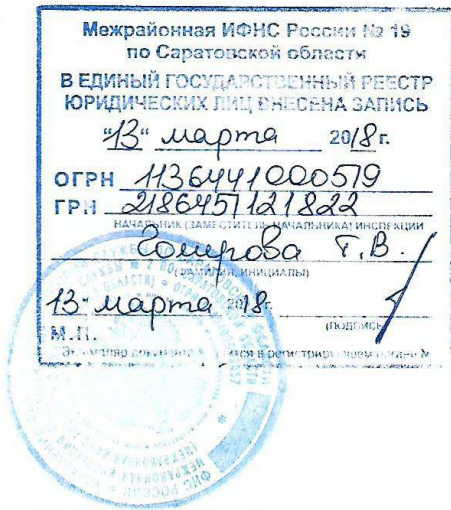 Межрайонная ИФНС России № 19
по Саратовской области
В ЕДИНЫЙ ГОСУДАРСТВЕННЫЙ РЕЕСТР
ЮРИДИЧЕСКИХ ЛИЦ ВНЕСЕНА ЗАПИСЬ
"13" марта 2018 г.
ОГРН 1136441000579
ГРН 2186451121822
НАЧАЛЬНИК (ЗАМЕСТИТЕЛЬ НАЧАЛЬНИКА) ИНСПЕКЦИИ
Т.В.
(ФАМИЛИЯ, ИНИЦИАЛЫ)
13 марта 2018г.
(ПОДПИСЬ)
М.П.
Экземпляр документа хранится в регистрирующем органе